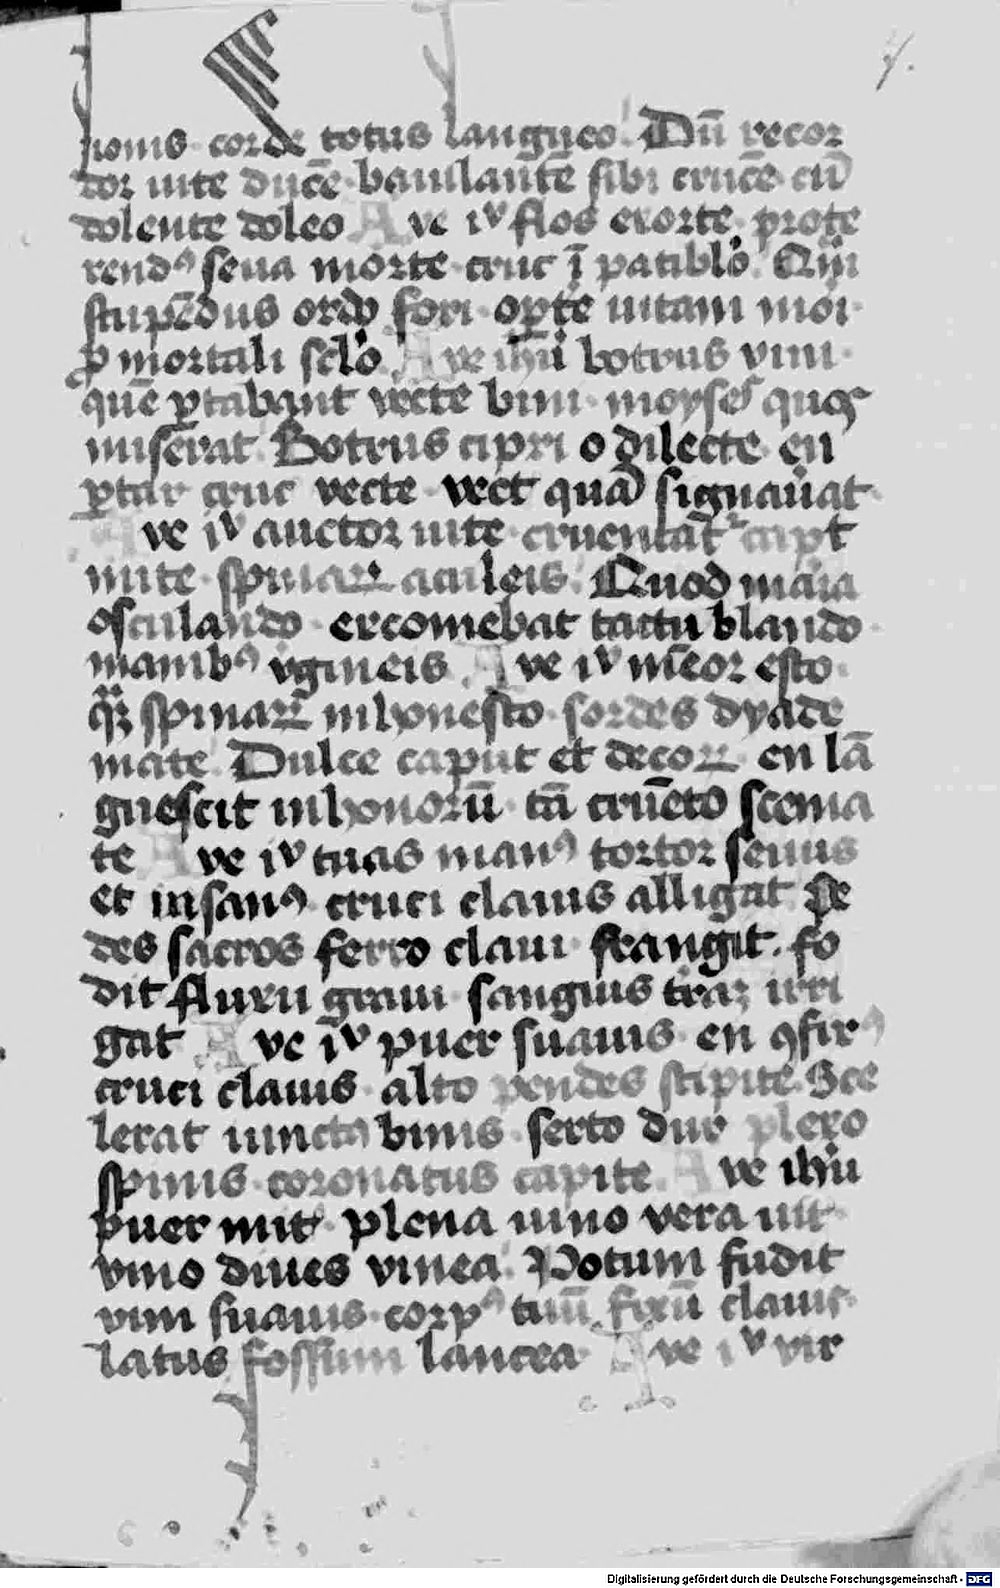 7.
nonis · corde totus langueo. Dū recor
dor uite ducē · baiulantē sibi crucē cū
dolente doleo Ave iħu flos exorte. prote
rendꝰ seua morte · cruc ī patiblo. Cui
stupēdus ordo fori · opte uitam mori ·
ꝓ mortali sclo. Ave ihū botrus vini ·
quē ꝑtabant vecte bini · moyses quos
miserat. Botrus cipri o dilecte · en
ꝑtar cruc vecte · vect quā signauat ·
Ave iħu auctor uite · cruentat capt
mite · spinaꝝ aculeis. Quod maria
osculando · excomebat tactu blando ·
manibꝰ ugineis. Ave iħu mēor esto ·
spinaꝝ inhonesto · sordes dyade
mate. Dulce caput et decoꝝ · en lā
guescit inhonorū · tā cruēto scema
te Ave iħu tuas manꝰ tortor seuus
et insanꝰ · cruci clauis alligat. Pe
des sacros ferro claui · frangit. fo
dit fluxu graui · sanguis irri
gat Ave iħu puer suauis · en ꝯfixꝰ
cruci clauis · alto pendes stipite. Sce
lerat iunctꝰ binis · serto dux plexo
spinis · coronatus capite. Ave ihū
puer mit · plena uino vera uit
vino diues vinea. Potum fudit
vim suauis · corpꝰ tuū fixū clauis ·
latus fossum lancea · Ave iħu vir
Digitalisierung gefördert durch die Deutsche Forschungsgemeinschaft - DFG